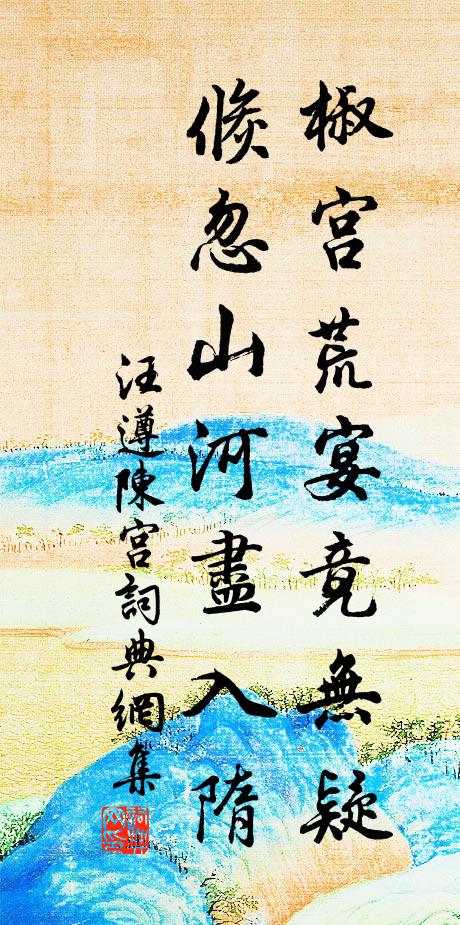 椒宮荒宴竟無疑
倐忽山河盡入隋
汪遵陳宮詞典網集